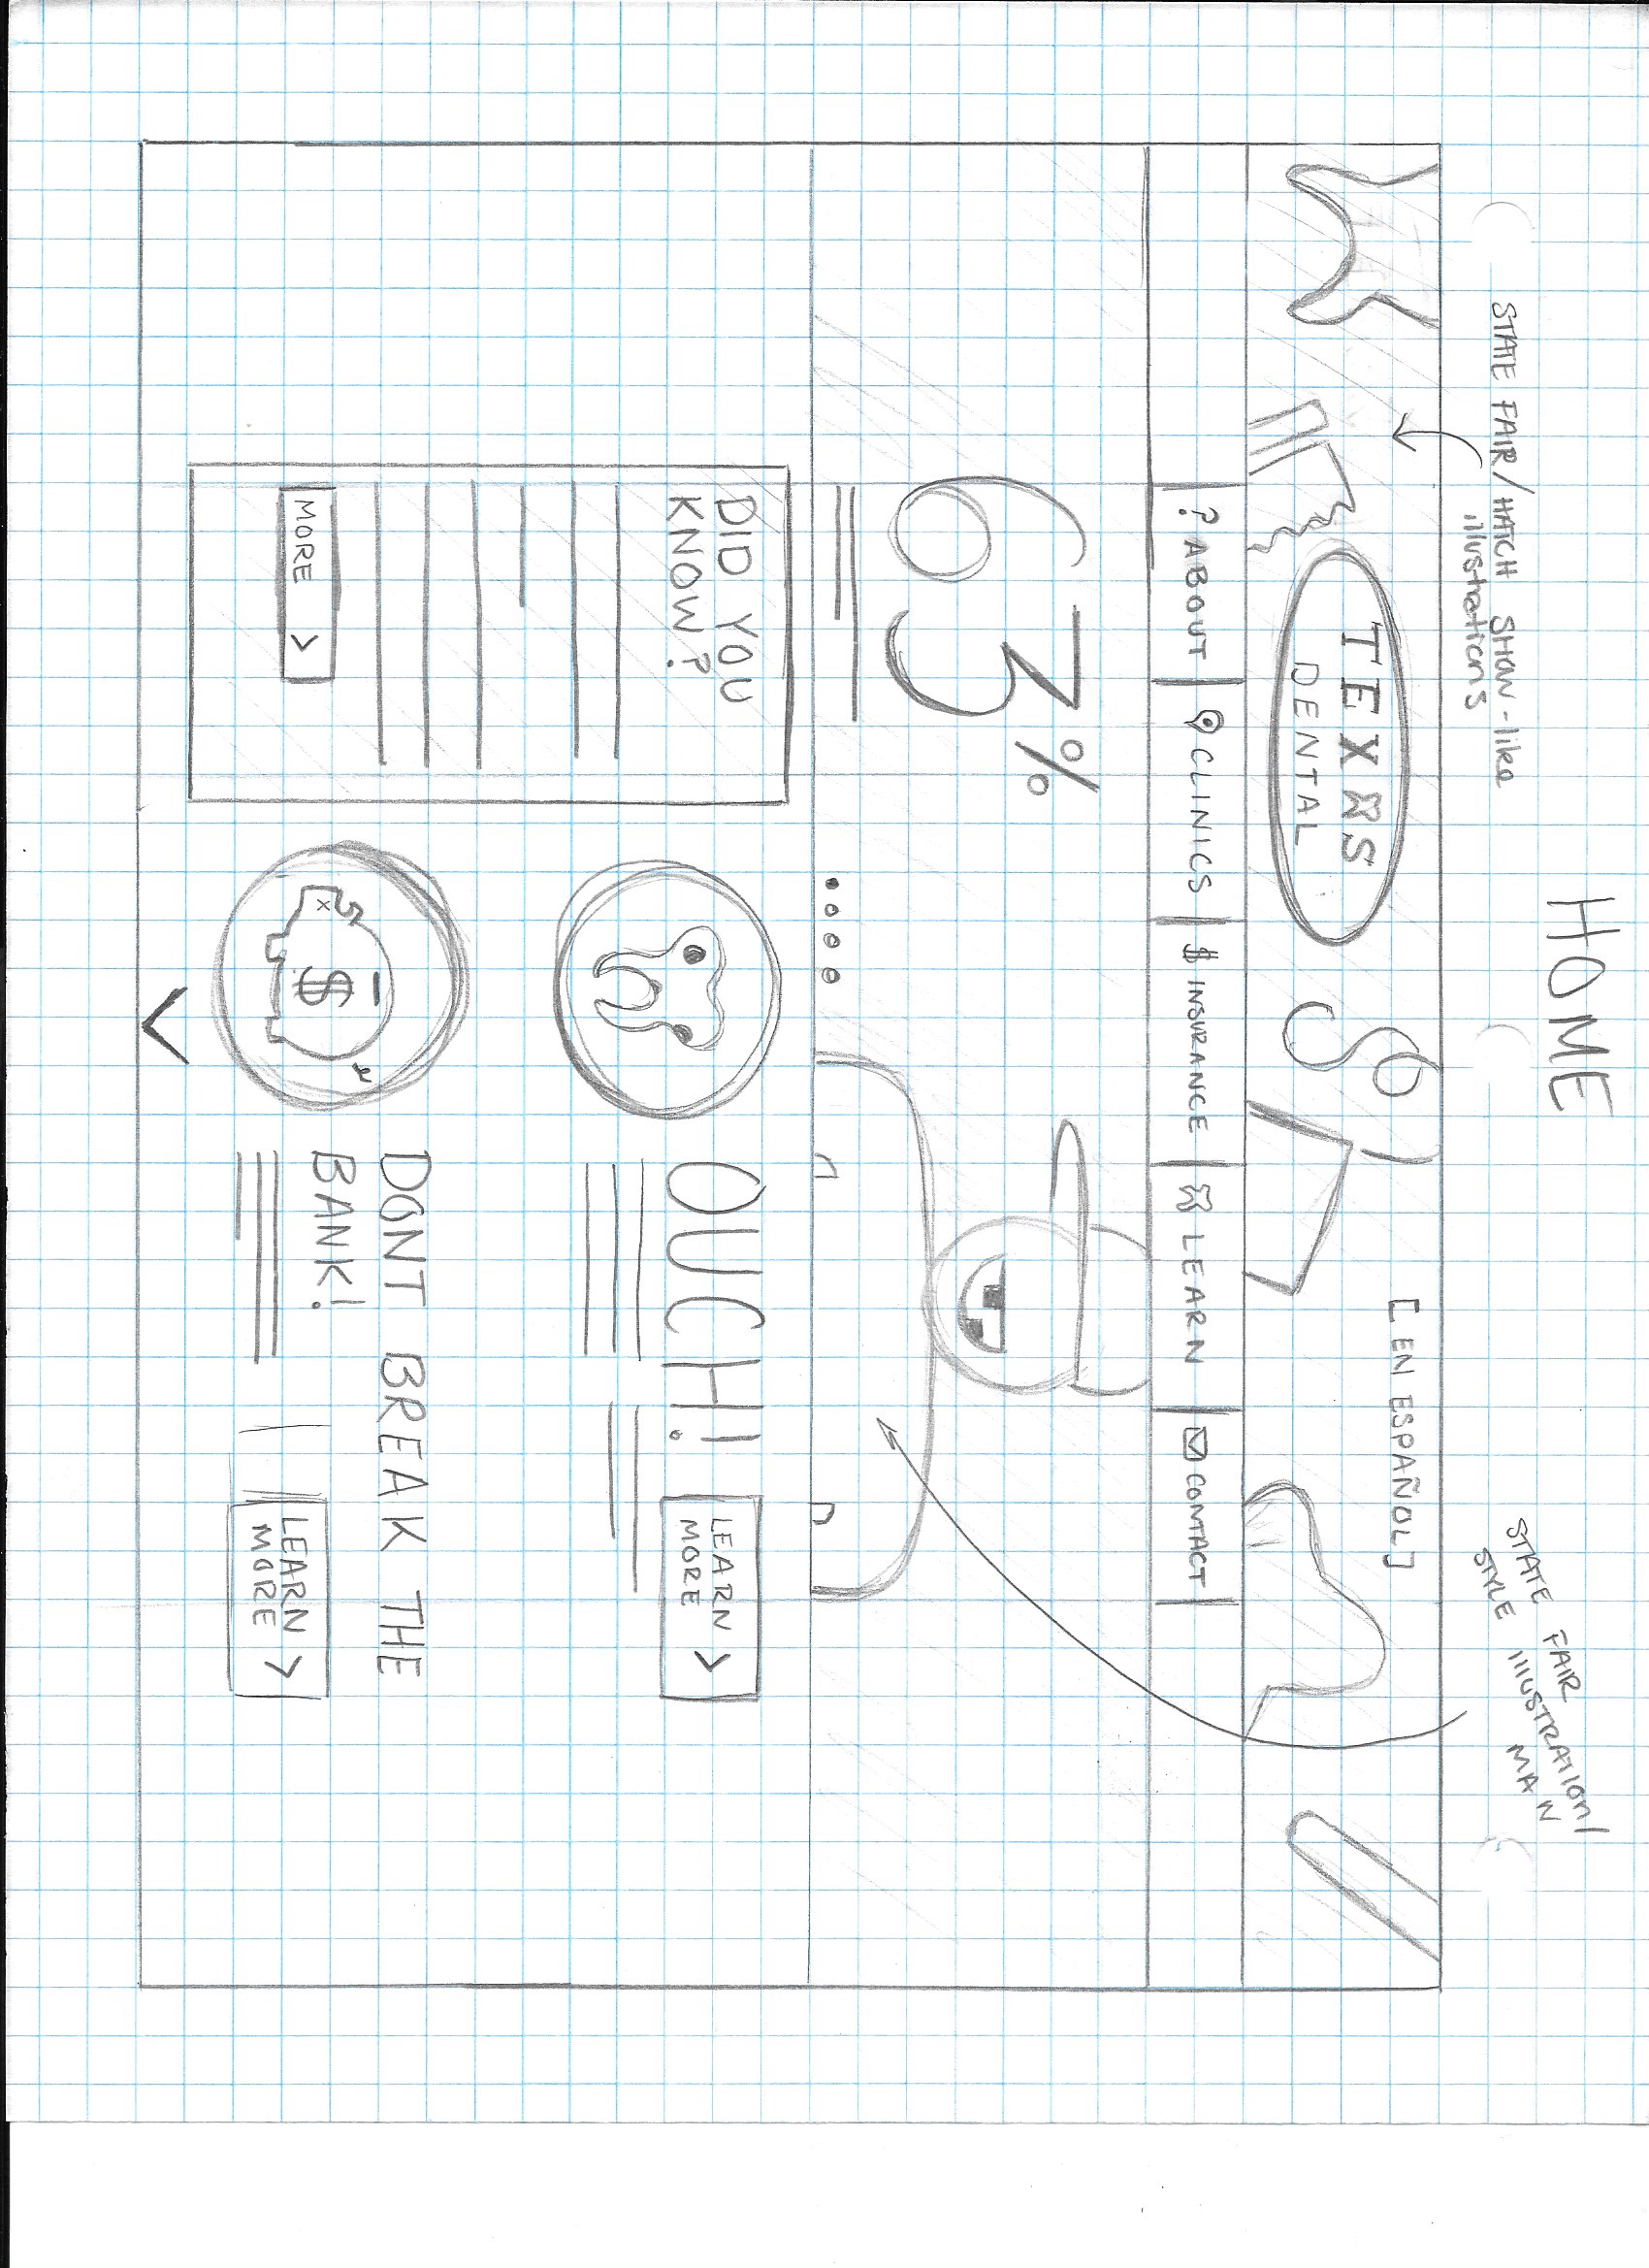 HOME
STATE FAIR/HATCH SHOW-like
illustrations
STATE FAIR
STYLE ILLUSTRATION/
MAN
[ EN ESPAÑOL ]
TEXAS
DENTAL
? ABOUT
CLINICS
$ INSURANCE
LEARN
CONTACT
63%
DID YOU
KNOW?
MORE >
OUCH!
LEARN
MORE >
$
DONT BREAK THE
BANK!
LEARN
MORE >